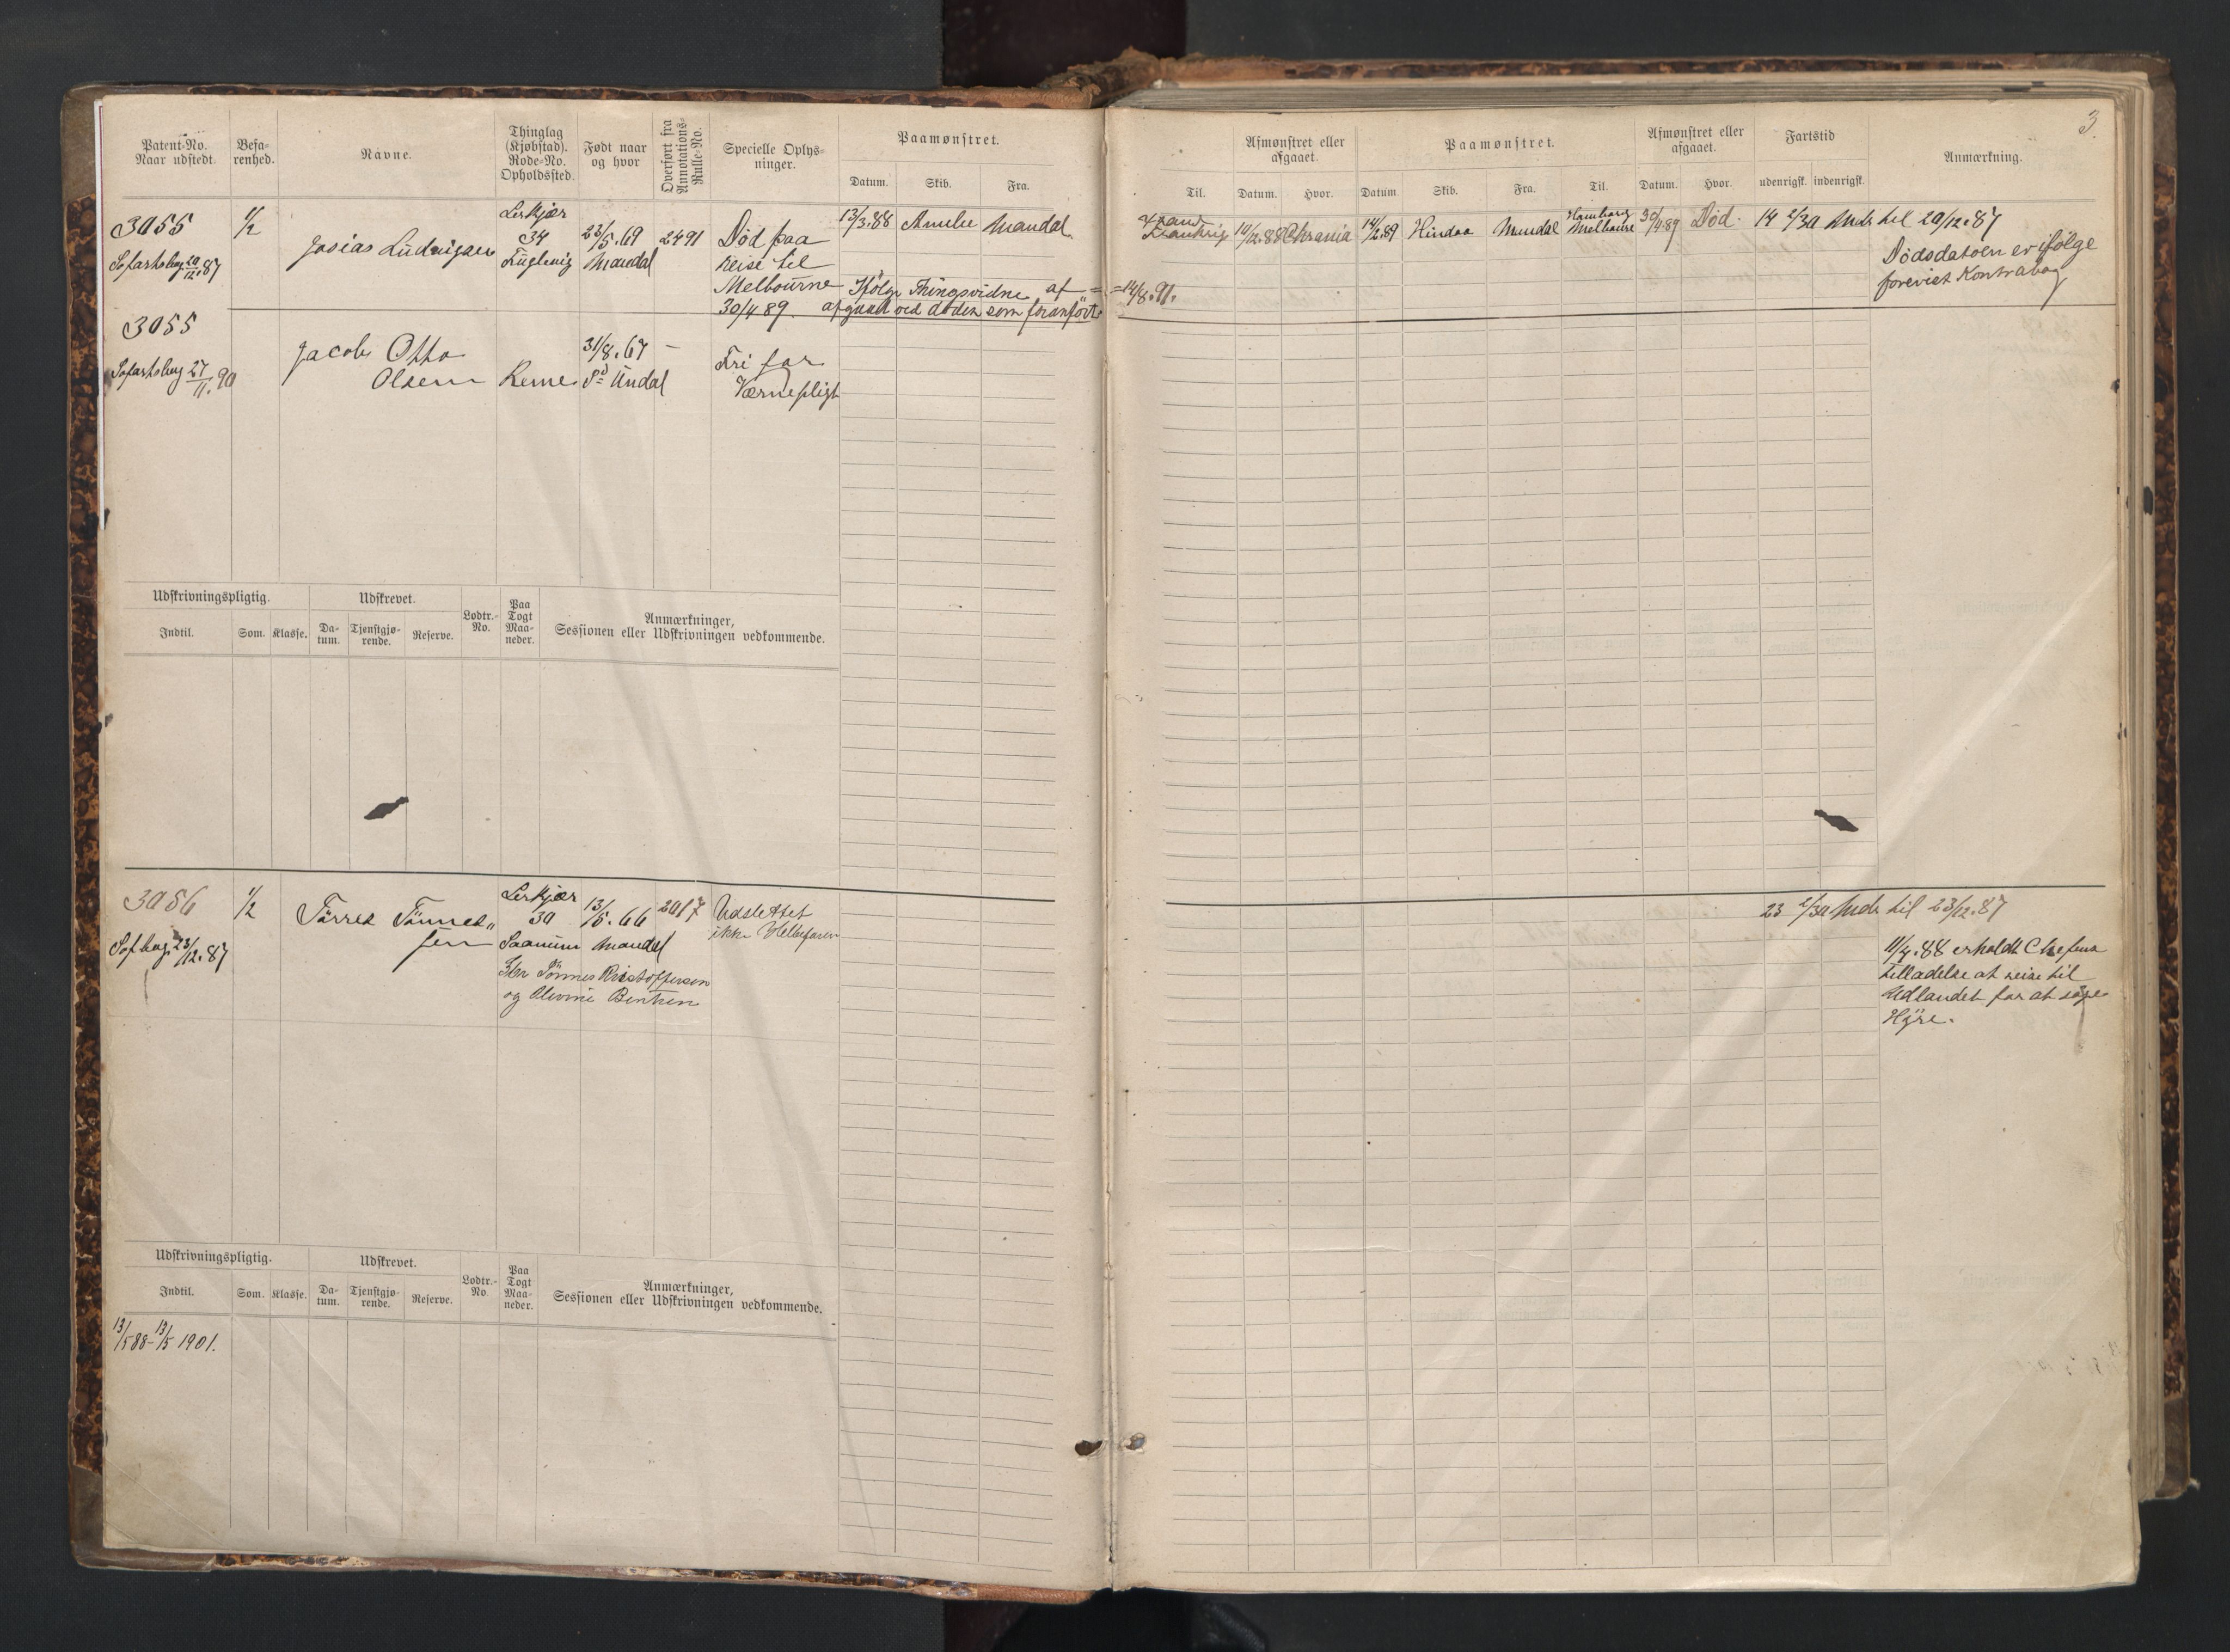 3.
Patent-No. Naar udstedt.
Befarenhed.
Navne.
Thinglag (Kjøbstad). Rode-No. Opholdssted.
Født naar og hvor
Overført fra Annotations-Rulle-No.
Specielle Oplysninger.
Paamønstret.
Datum. Skib. Fra.
Til.
Afmønstret eller afgaaet.
Datum. Hvor.
Paamønstret.
Datum Skib. Fra. Til.
Afmønstret eller afgaaet.
Datum. Hvor.
Fartstid
udenrigsk. indenrigsk.
Anmærkning.
3055
Sofartsbog 20/12.87
1/2
Josias Ludvigsen
34
23/5.69
Mandal
2491
Død paa
Reise til
Melbourne
30/4 89.
13/3.88 Amelie Mandal
Frankrig 10/12.88 Chrania 14/2.89 Hindoo Mandal Hamborg
Melbourne 30/4 89 Død. 14 2/30 Mdr til 20/12.87
Dødsdatoen er ifølge
forevist Kontrabog
Ifölge Thingsvidne af =
=14/8.91.
afgaaet ved döden som foranfört.
3055
Sofartsbog 27/11.90
Jacob Otto
Olsen
31/8.67 –
Sd Undal
Fri for
Værnepligt
Udskrivningspligtig.
Indtil. Som. Klasse.
Udskrevet.
Datum. Tjenstgjørende. Reserve.
Lodtr.-No.
Paa Togt Maaneder.
Anmærkninger,
Sessionen eller Udskrivningen vedkommende.
3056
Sofbog 23/12.87
1/2
Törres Tönnes„
sen
30
13/5.66
Mandal
2017
Udslettet
ikke Helbefaren
Tönnes Kristoffersen
og Bentsen
23 2/30 Mdr til 23/12.87
11/4.88 erholdt Chefens
tilladelse at reise til
Udlandet for at söge
Hÿre.
Udskrivningspligtig.
Indtil. Som. Klasse.
Udskrevet.
Datum. Tjenstgjørende. Reserve.
Lodtr.-No
Paa Togt Maaneder.
Anmærkninger,
Sessionen eller Udskrivningen vedkommende.
13/5 88– 13/5 1901.